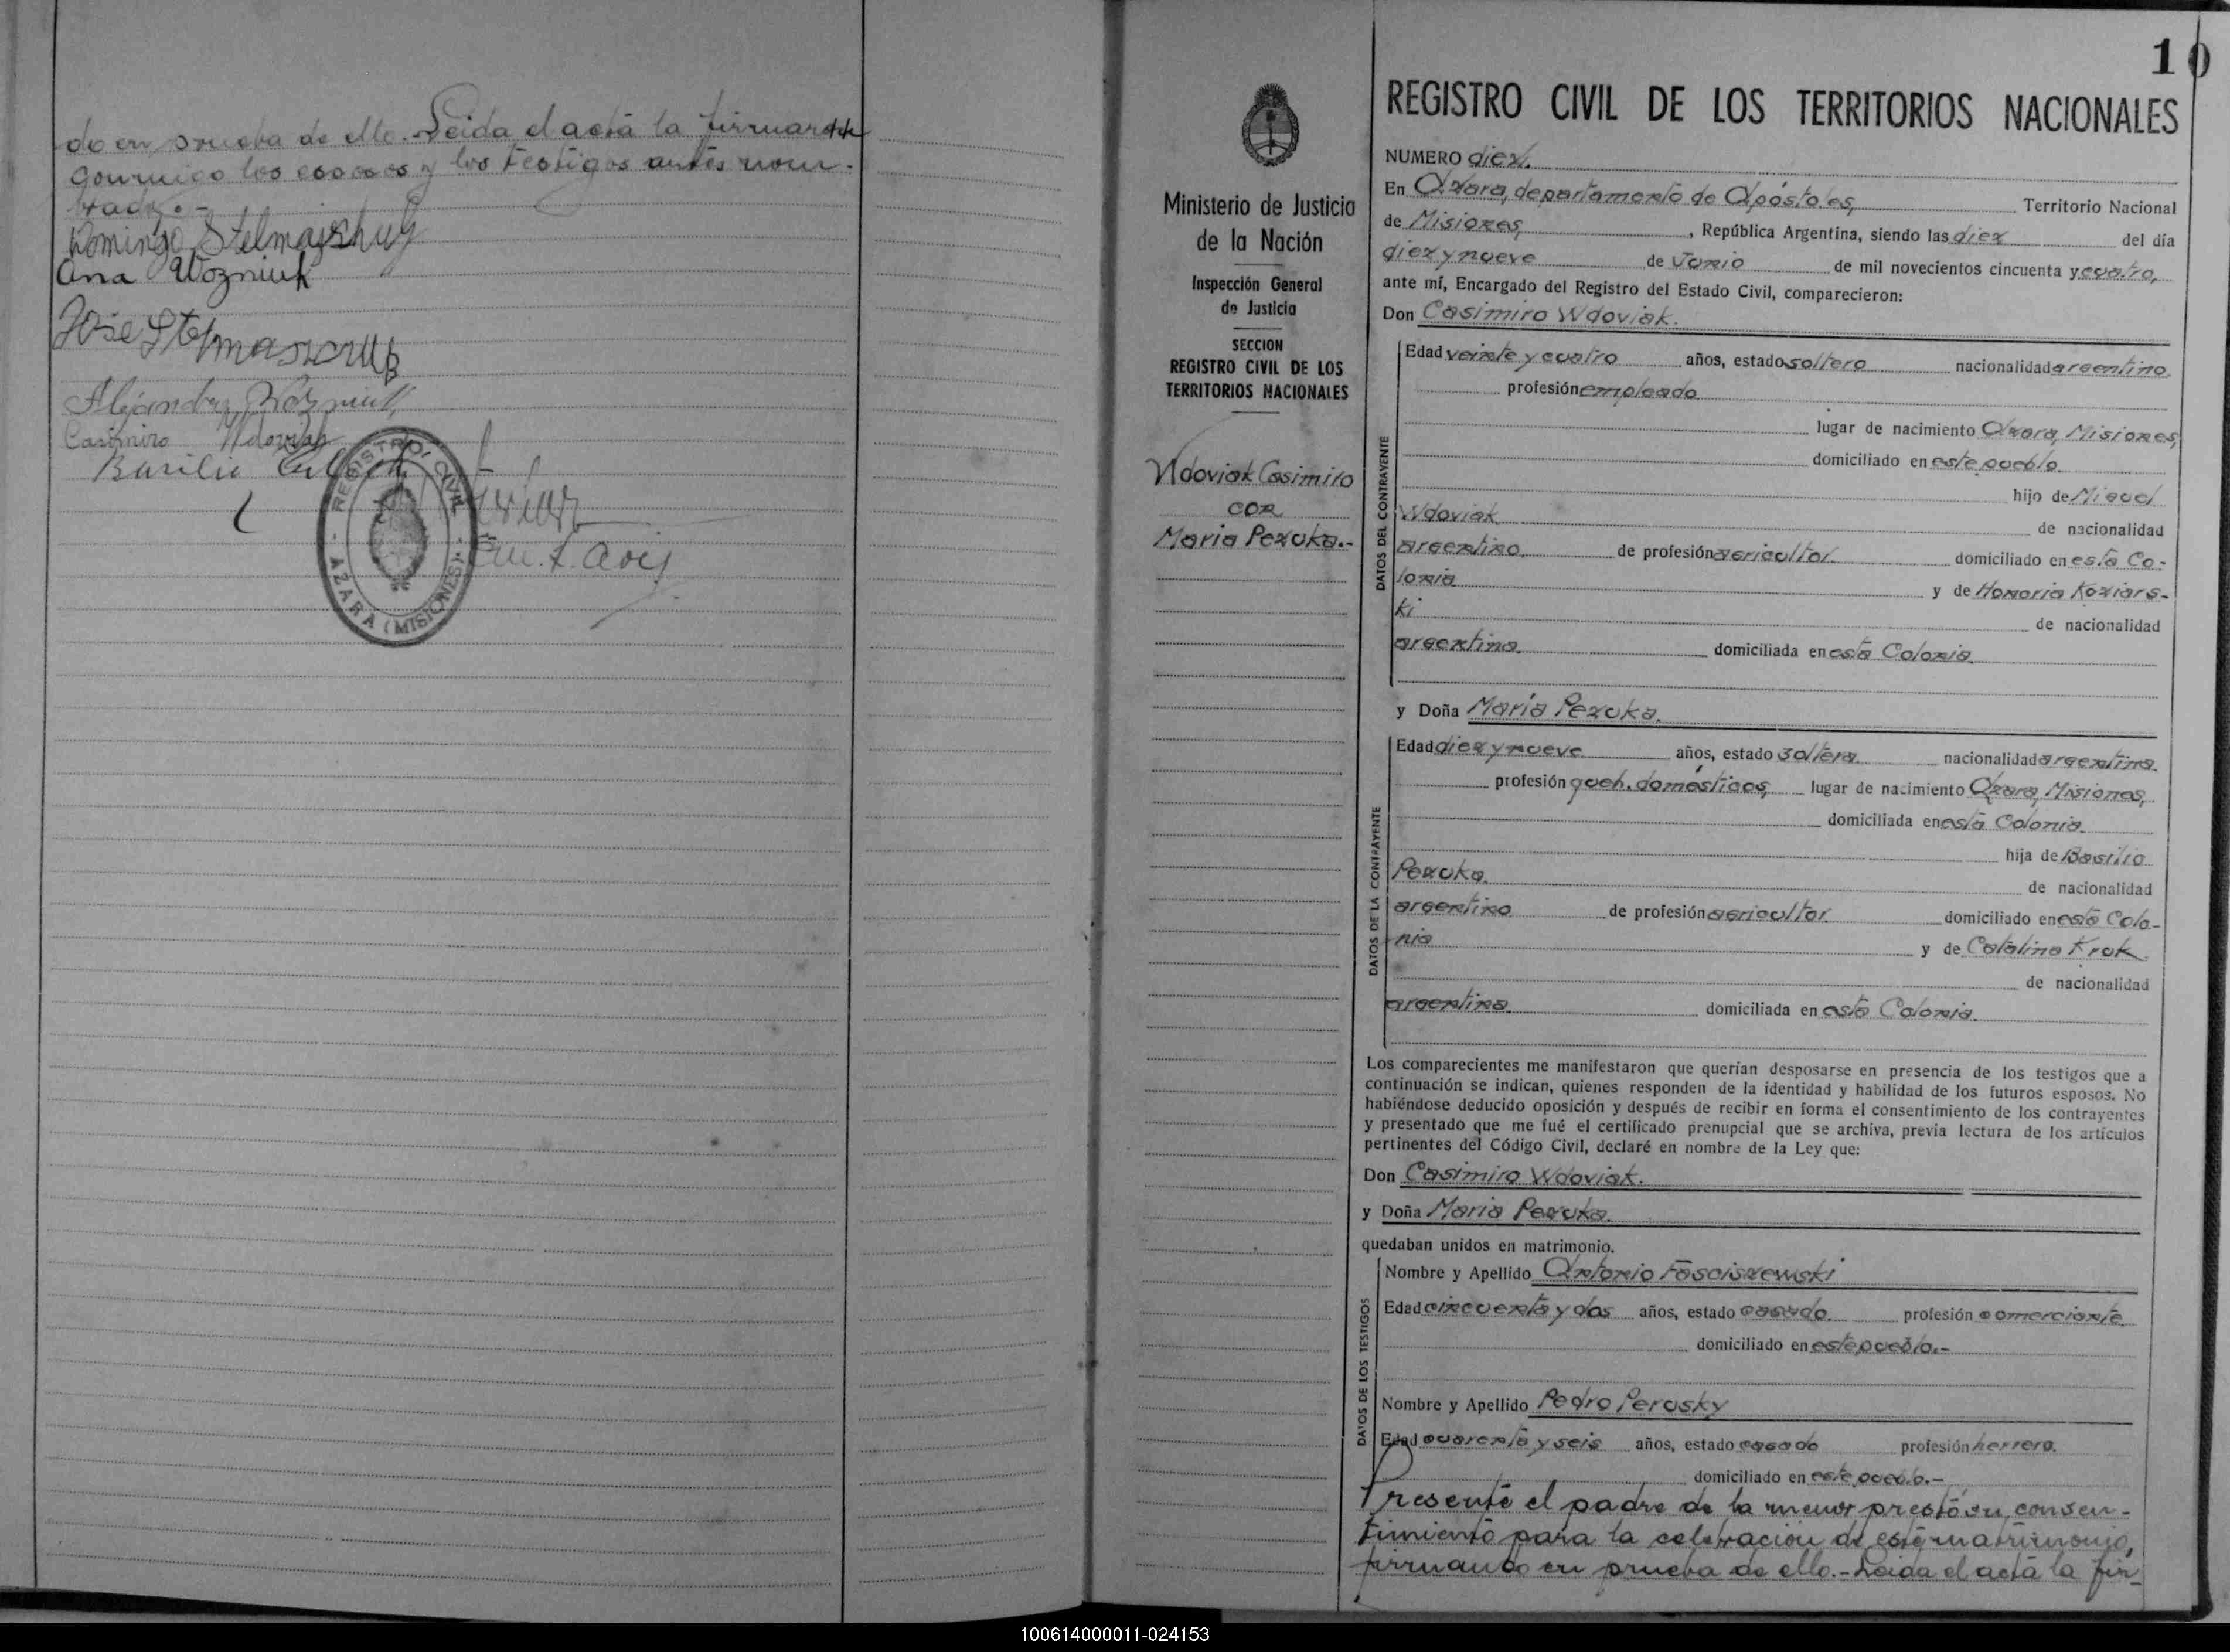 do en prueba de ello. Leida el acta la firmaron
conmigo los esposos y los testigos antes nom-
brados.-
Domingo Stelmaszczuk
Ana Wozniuk
José Stelmaszczuk
Alejandro Wozniuk
Casimiro Wdoviak
Basilio
REGISTRO CIVIL
AZARA (MISIONES)
10
REGISTRO CIVIL DE LOS TERRITORIOS NACIONALES
Ministerio de Justicia
de la Nación
Inspección General
de Justicia
SECCION
REGISTRO CIVIL DE LOS
TERRITORIOS NACIONALES
Wdoviak Casimiro
con
Maria Pezuka.-
NUMERO diez.
En Azara, departamento de Apóstoles, Territorio Nacional
de Misiones, , República Argentina, siendo las diez del día
diez y nueve de Junio de mil novecientos cincuenta y cuatro,
ante mí, Encargado del Registro del Estado Civil, comparecieron:
Don Casimiro Wdoviak.
DATOS DEL CONTRAYENTE
Edad veinte y cuatro años, estado soltero nacionalidad argentino
profesión empleado
lugar de nacimiento Azara, Misiones,
domiciliado en este pueblo.
hijo de Miguel
Wdoviak de nacionalidad
argentino. de profesión agricultor. domiciliado en esta Co-
lonia y de Honoria Koziars-
ki de nacionalidad
argentina. domiciliada en esta Colonia.
y Doña María Pezuka.
DATOS DE LA CONTRAYENTE
Edad diez y nueve años, estado soltera nacionalidad argentina.
profesión queh. domésticos, lugar de nacimiento Azara, Misiones,
domiciliada en esta Colonia.
hija de Basilio
Pezuka. de nacionalidad
argentino de profesión agricultor. domiciliado en esta Colo-
nia y de Catalina Kruk
de nacionalidad
argentina. domiciliada en esta Colonia.
Los comparecientes me manifestaron que querían desposarse en presencia de los testigos que a
continuación se indican, quienes responden de la identidad y habilidad de los futuros esposos. No
habiéndose deducido oposición y después de recibir en forma el consentimiento de los contrayentes
y presentado que me fué el certificado prenupcial que se archiva, previa lectura de los artículos
pertinentes del Código Civil, declaré en nombre de la Ley que:
Don Casimiro Wdoviak.
y Doña Maria Pezuka.
quedaban unidos en matrimonio.
DATOS DE LOS TESTIGOS
Nombre y Apellido Antonio Fasciszewski
Edad cincuenta y dos años, estado casado. profesión comerciante
domiciliado en este pueblo.-
Nombre y Apellido Pedro Perusky
Edad cuarenta y seis años, estado casado profesión herrero.
domiciliado en este pueblo.-
Presente el padre de la menor prestó su consen-
timiento para la celebracion de este matrimonio,
firmando en prueba de ello.- Leida el acta la fir-
100614000011-024153